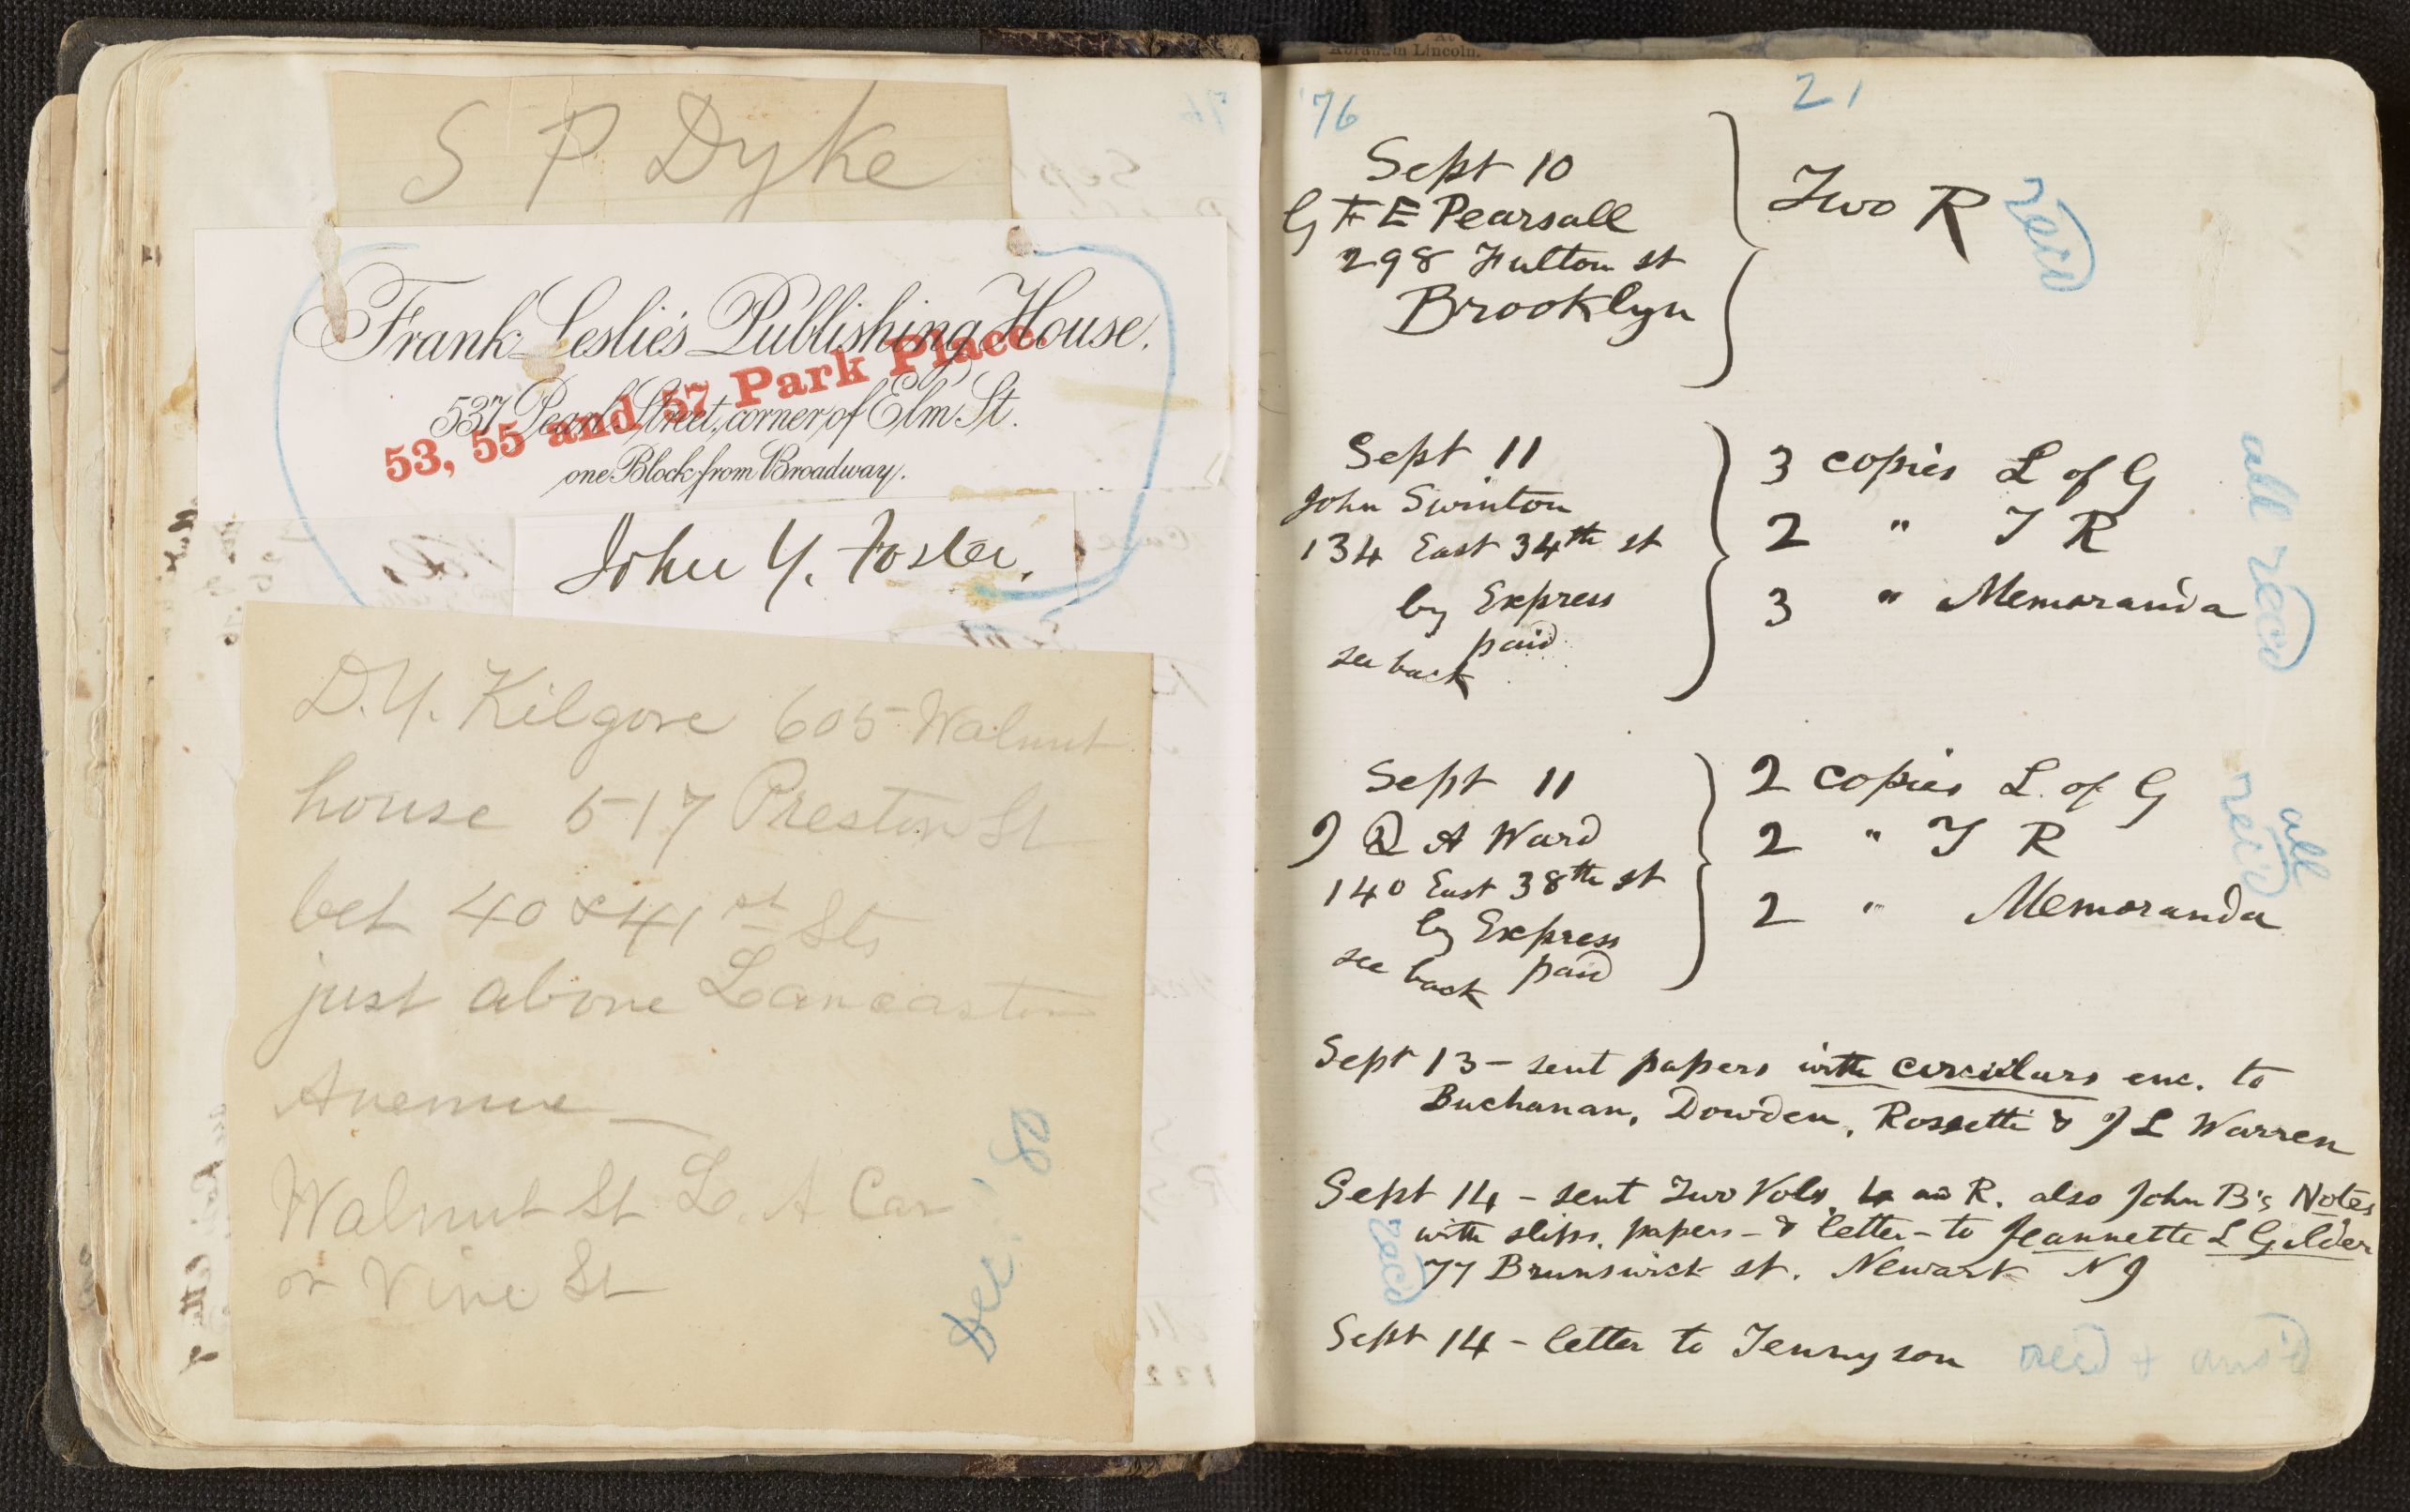 S P Dyke
Frank Leslie's Publishing House.
537 Pearl Street, corner of Elm St.
53, 55 and 57 Park Place.
one Block from Broadway.
John Y. Foster.
D. Y. Kilgore 605 Walnut
house 517 Preston St
bet 40 & 41st Sts
just above Lancaster
Avenue —
Walnut St L. A Car
or Vine St
Dec. '80
Abraham Lincoln.
'76
21
Sept 10
G F E Pearsall
298 Fulton st
Brooklyn
Two R
recd
Sept 11
John Swinton
134 East 34th st
by Express
paid
see back
3 copies L of G
2 " T R
3 " Memoranda
all recd
Sept 11
J Q A Ward
140 East 38th st
by Express
paid
see back
2 copies L. of G
2 " T R
2 " Memoranda
all
rec'd
Sept 13 – sent papers with circulars enc. to
Buchanan, Dowden, Rossetti & J L Warren
Sept 14 – sent Two Vols. R. also John B's Notes
with slips, papers – & letter – to Jeannette L Gilder
77 Brunswick st. Newark N J
recd
Sept 14 – letter to Tennyson
recd & ans'd